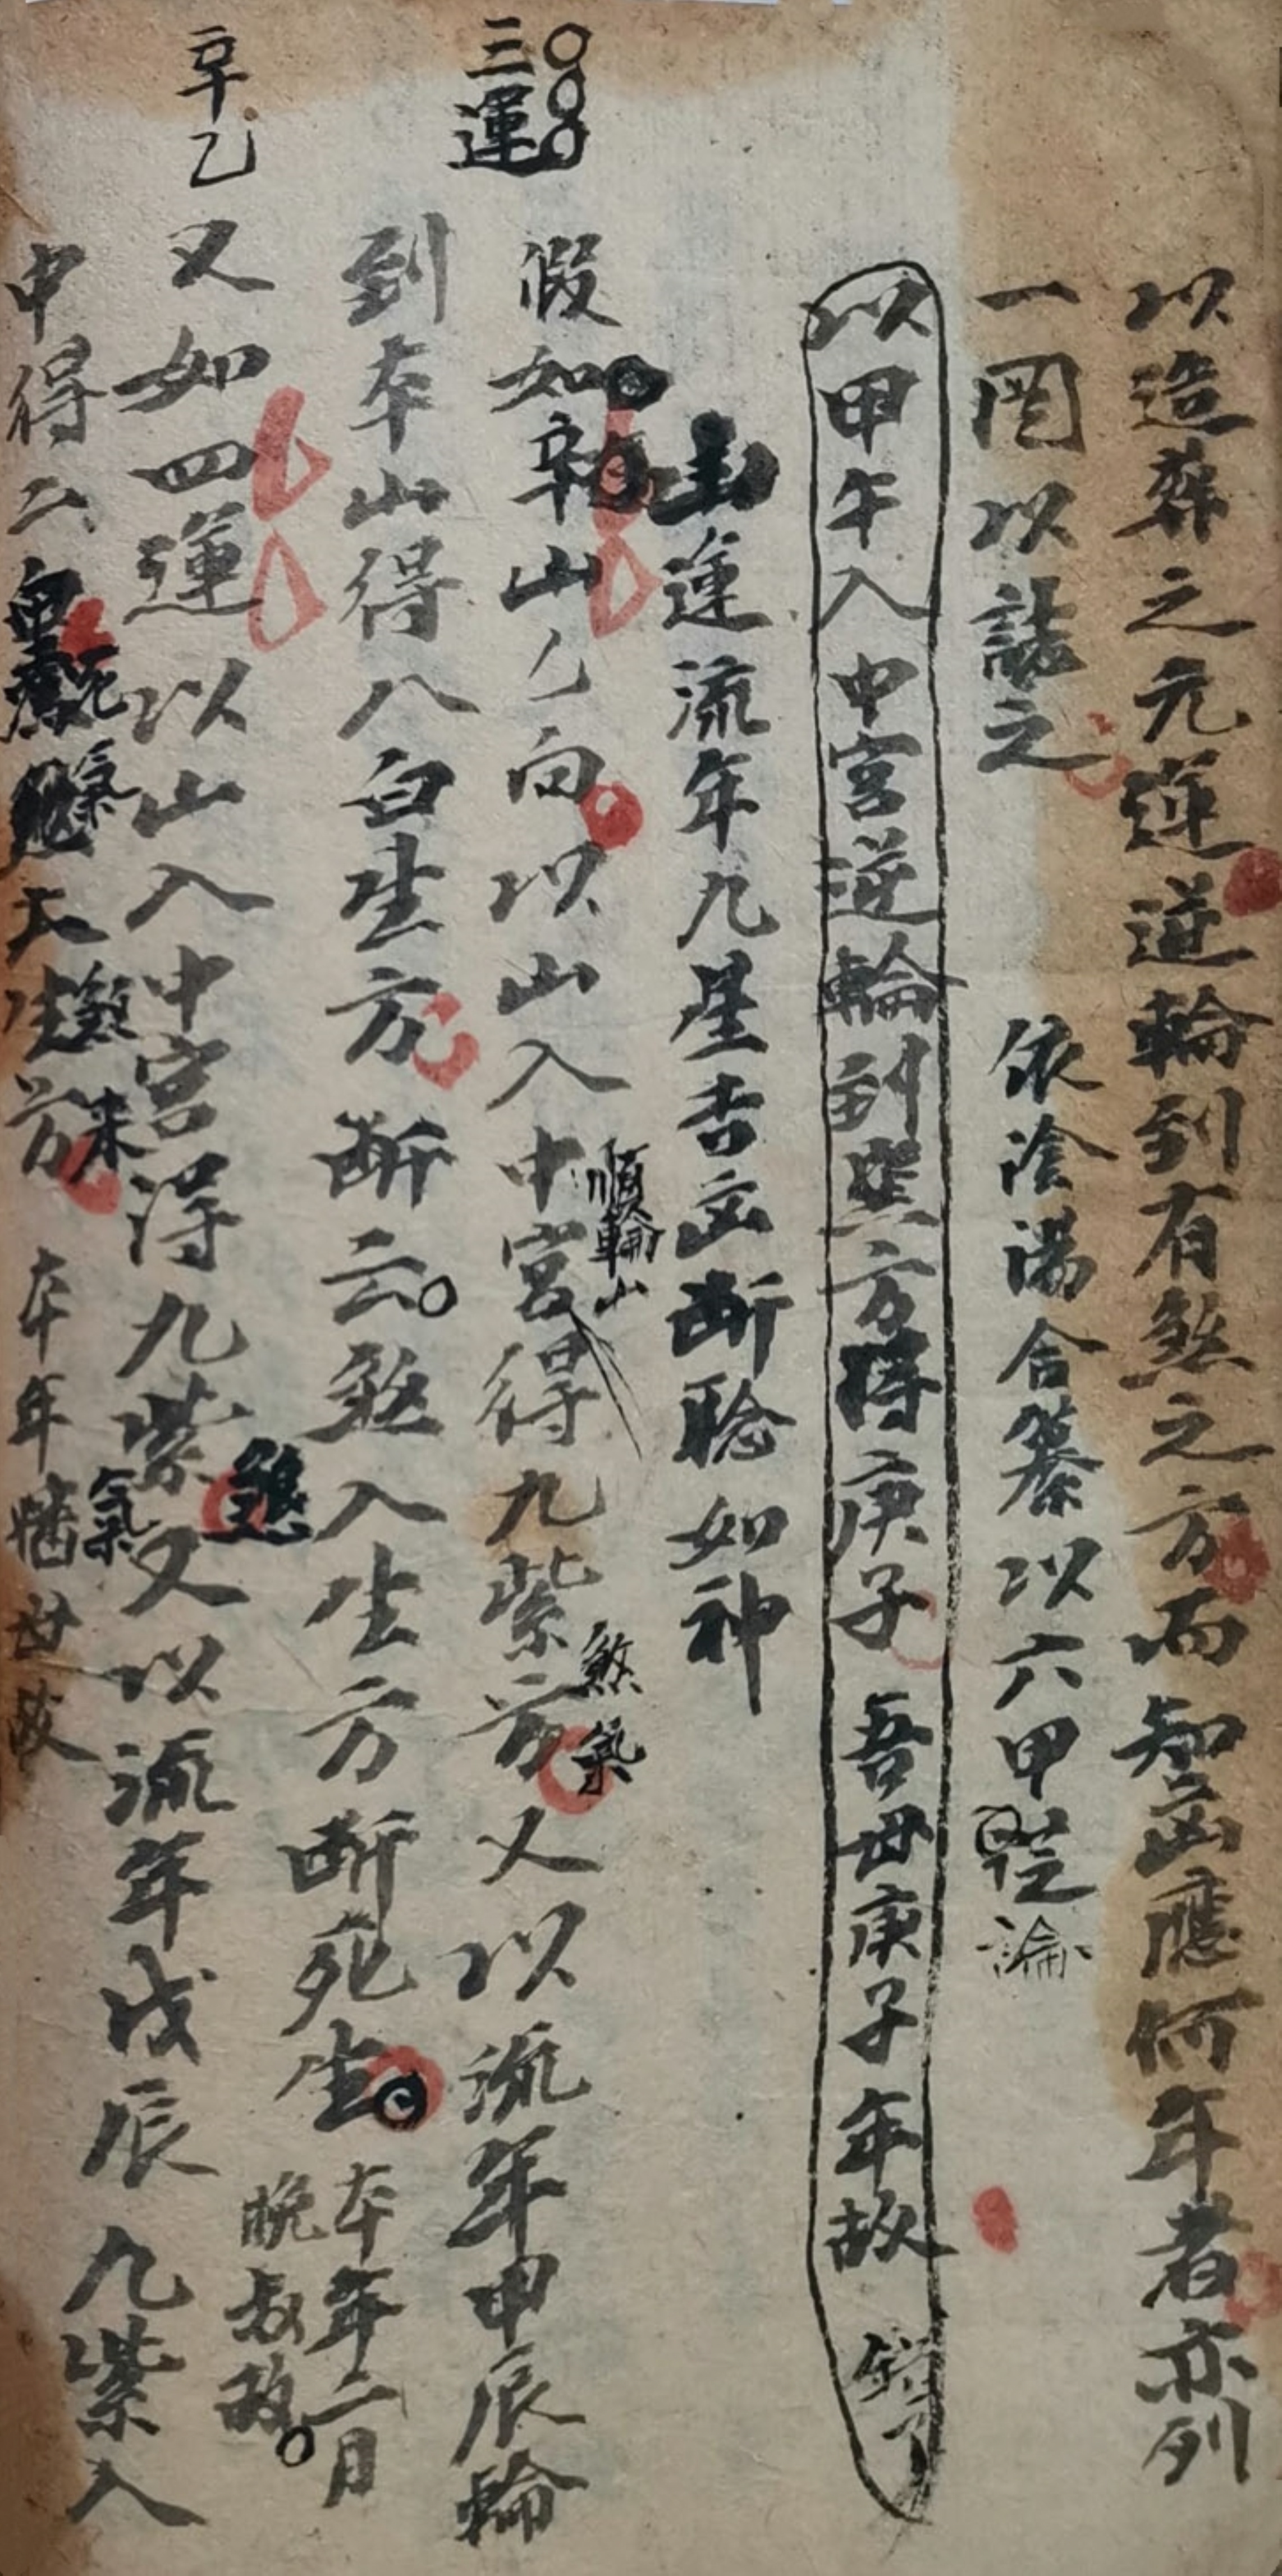 以造葬之元運逆輪到有煞之方而知凶應何年者亦列
一图以誌之
依陰陽合纂以六甲論
以甲午入中宮逆輪到巽方得庚子 吾母庚子年故 錯了
運流年九星吉凶斷驗如神
三運
假如辛山乙向以山入中宮得九紫方又以流年甲辰輪
順輪山
煞氣
到本山得八白生方 斷云煞入生方斷死生
本年二月
晚叔故
辛乙
又如四運以山入中宮得九紫又以流年戊辰九紫入
煞氣
中得二 死氣 生方
煞未
本年 母故